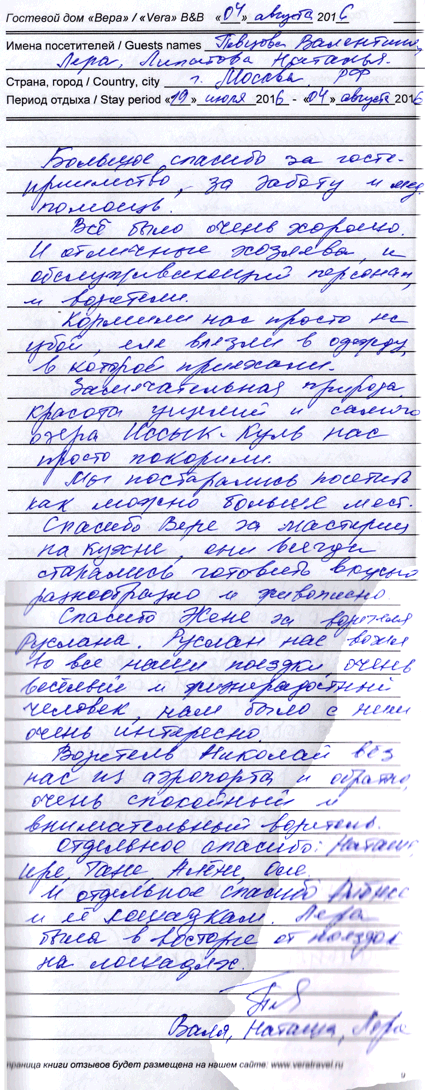 Гостевой дом «Вера» / «Vera» B&B «04» августа 2016
Имена посетителей / Guests names Певцова Валентина,
Лера, Липатова Наталья.
Страна, город / Country, city г. Москва, РФ
Период отдыха / Stay period «19» июля 2016 - «04» августа 2016
Большое спасибо за госте-
приимство, за заботу и
помощь.
Всё было очень хорошо.
И отличные хозяева, и
обслуживающий персонал,
и водители.
Кормили нас просто на
убой, еле влезли в одежду,
в которой приехали.
Замечательная природа,
красота ущелий и самого
озера Иссык-Куль нас
просто покорили.
Мы постарались посетить
как можно больше мест.
Спасибо Вере за мастериц
на кухне, они всегда
старались готовить вкусно
разнообразно и
Спасибо Жене за водителя
Руслана. Руслан нас возил
во все наши поездки, очень
весёлый и жизнерадостный
человек, нам было с ним
очень интересно.
Водитель Николай вёз
нас из аэропорта и обратно,
очень спокойный и
внимательный водитель.
Отдельное спасибо: Наташе,
Ире, Тане, Алёне, Оле.
И отдельное спасибо
и её лошадкам. Лера
была в восторге от поездок
на лошадях.
Валя, Наташа, Лера
раница книги отзывов будет размещена на нашем сайте: www.veratravel.ru